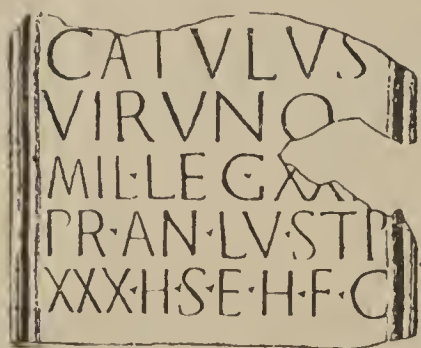 CATVLVS
VIRVNO
MIL·LEG·XX
PR·AN·LV·STP
XXX·H·S·E·H·F·C